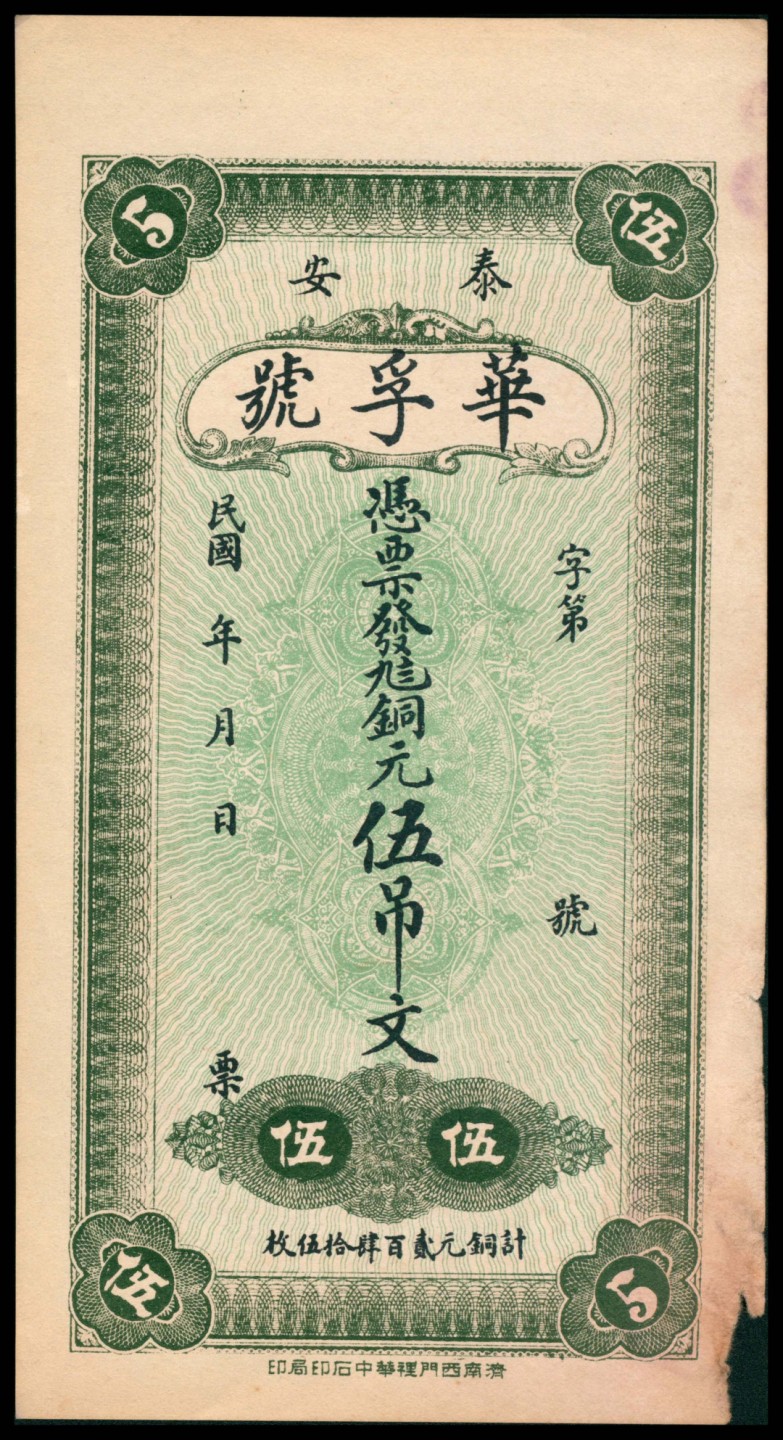 伍
5
泰安
華孚號
字第 號
憑票發 銅元伍吊文
民國 年 月 日
票
伍 伍
計銅元貳百肆拾伍枚
5
伍
濟南西門裡華中石印局印